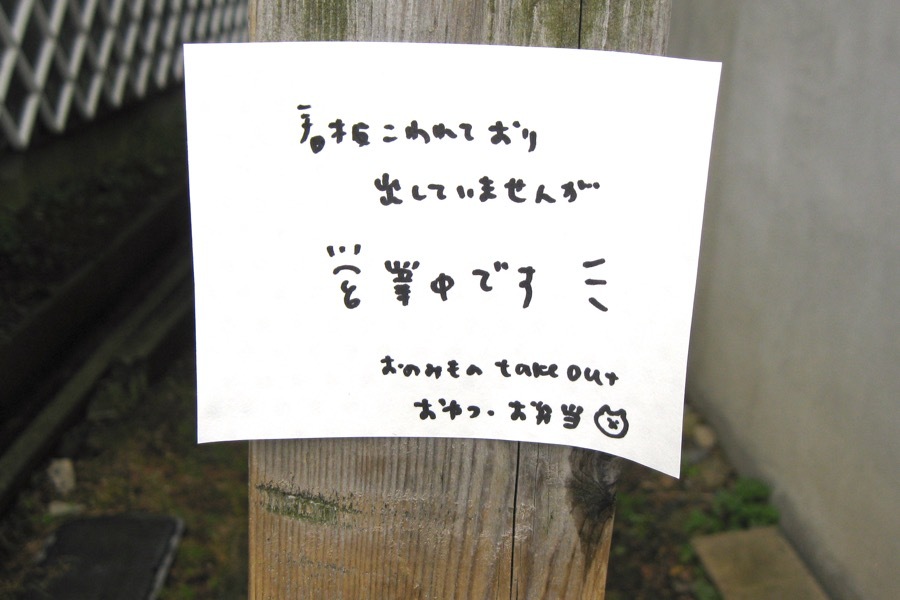 看板こわれており
出していませんが
営業中です
おのみもの take out
おやつ・お弁当